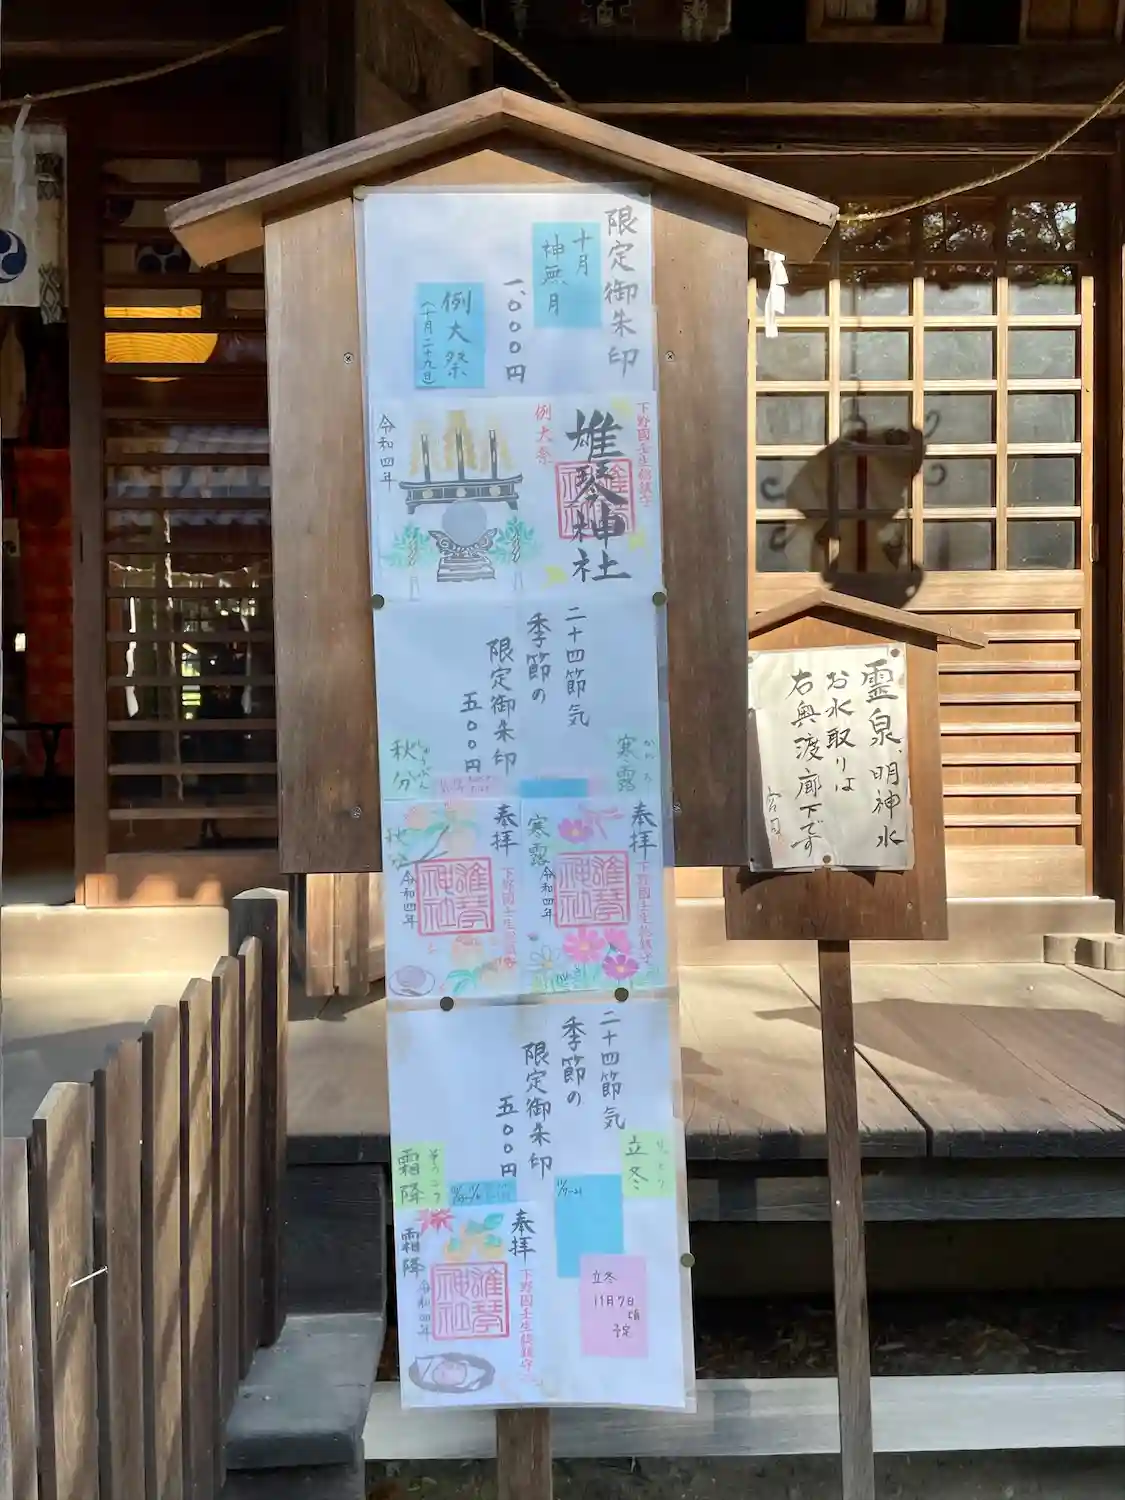 限定御朱印
十月
神無月
一、〇〇〇円
例大祭
(十月二十九日)
下野國壬生総鎮守
雄琴神社
例大祭
令和四年
二十四節気
季節の
限定御朱印
五〇〇円
寒露
かんろ
秋分
しゅうぶん
奉拝
下野國壬生総鎮守
雄琴神社
寒露
令和四年
奉拝
下野國壬生総鎮守
雄琴神社
秋分
令和四年
二十四節気
季節の
限定御朱印
五〇〇円
立冬
11/7-21
霜降
そうこう
奉拝
下野國壬生総鎮守
雄琴神社
霜降
令和四年
立冬
11月7日
頃
予定
霊泉、明神水
お水取りは
右奥渡廊下です
宮司